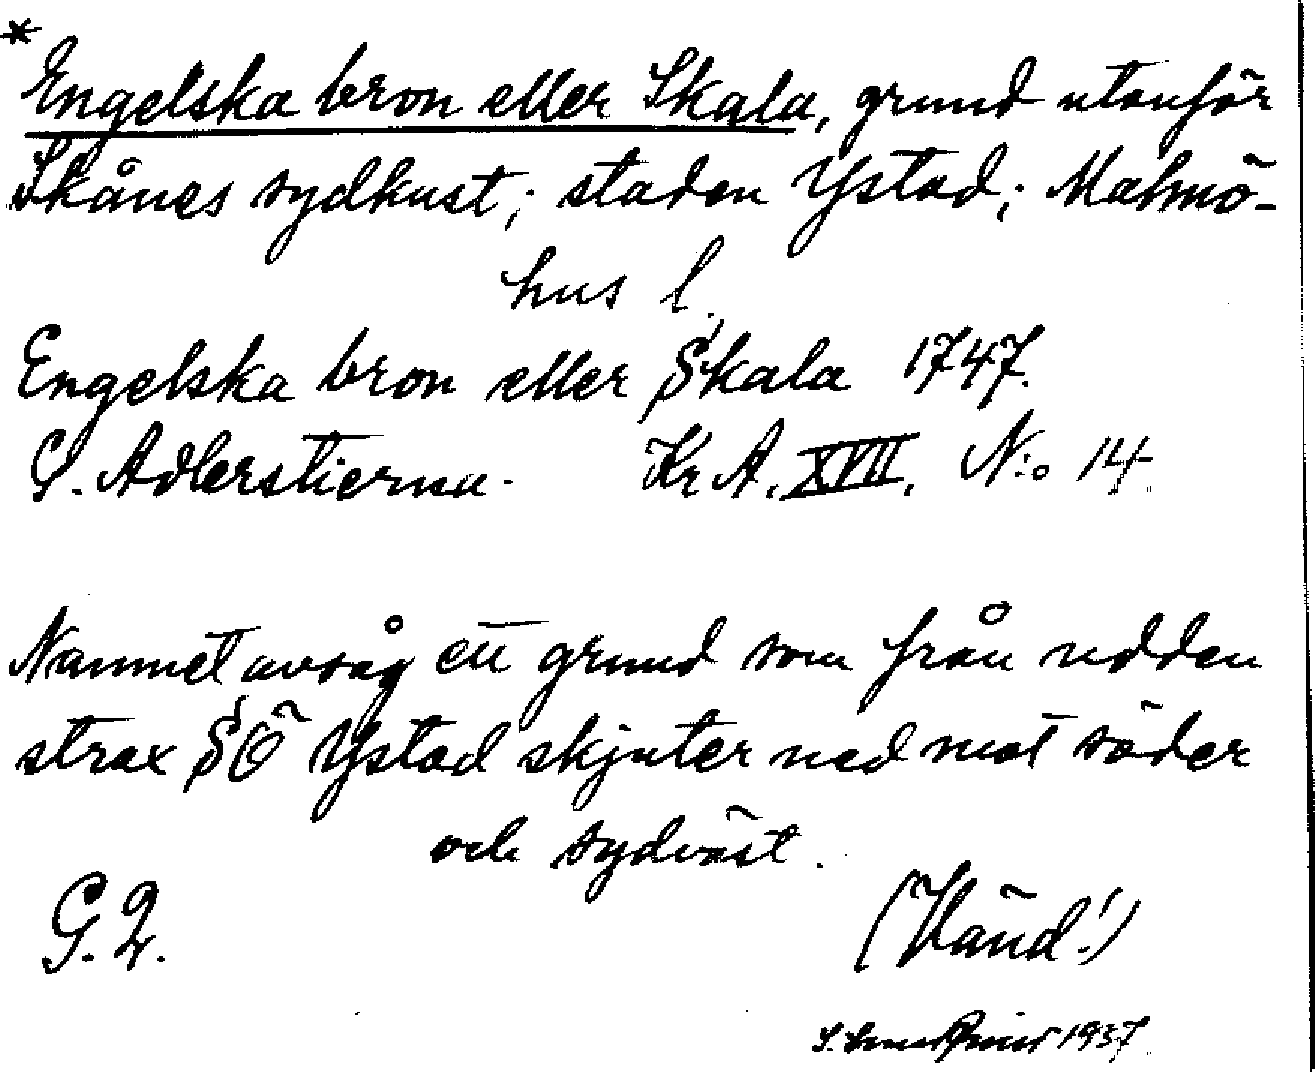 *
Engelska bron eller Skala, grund utanför
Skånes sydkust; staden Ystad; Malmö-
hus l.
Engelska bron eller Skala 1747.
C. Adlerstierna. Kr. A. XVII. N:o 14.
Namnet avsåg ett grund som från udden
strax SÖ Ystad skjuter ned mot söder
och sydväst.
G. 2. (Vänd!)
1937